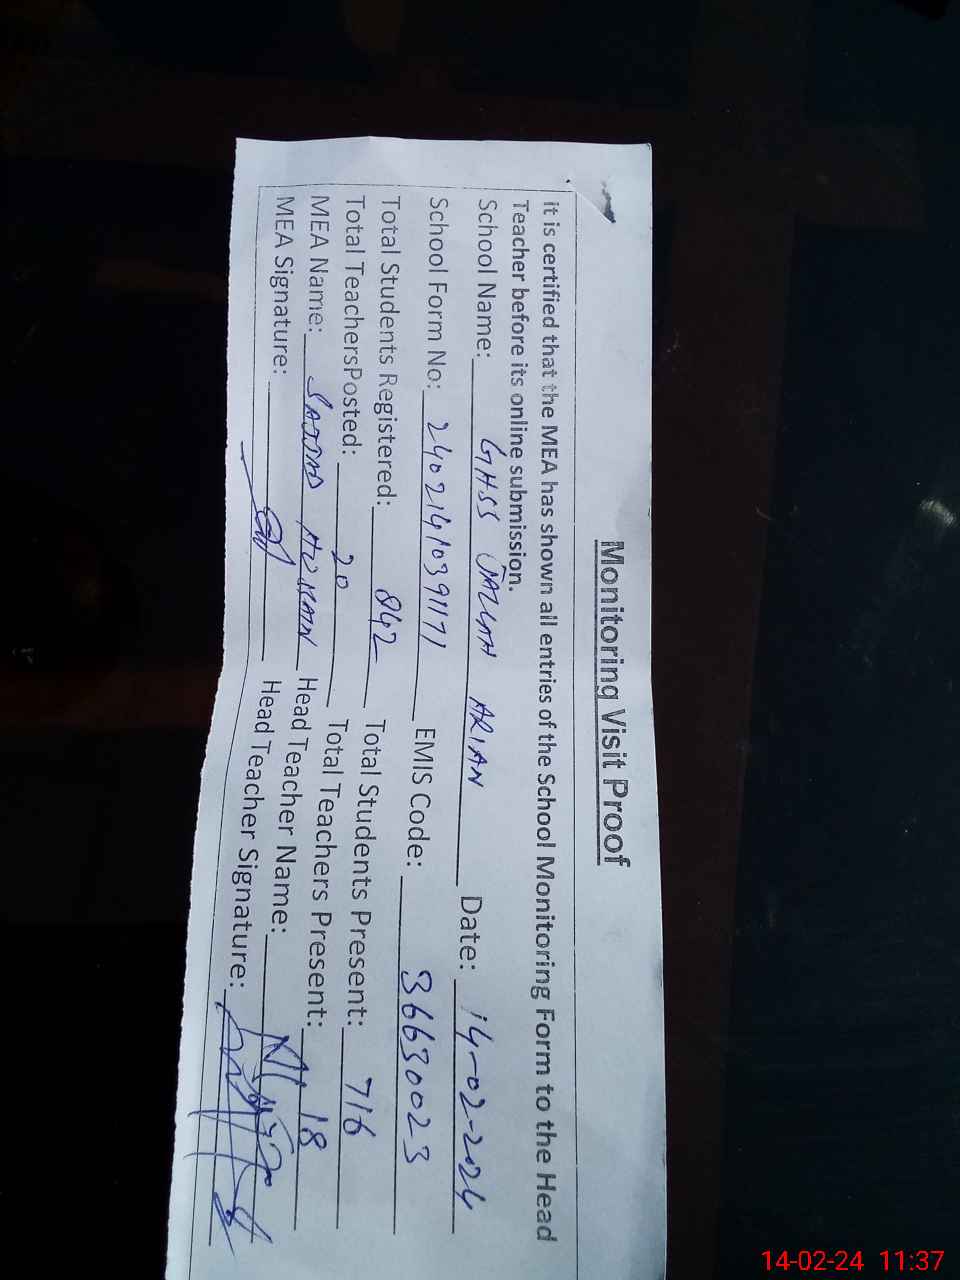 Monitoring Visit Proof
it is certified that the MEA has shown all entries of the School Monitoring Form to the Head
Teacher before its online submission.
School Name: GHSS JALLAH ARIAN Date: 14-02-2024
School Form No: 24021410391171 EMIS Code: 36630023
Total Students Registered: 842 Total Students Present: 716
Total TeachersPosted: 20 Total Teachers Present: 18
MEA Name: SAJJAD HUSSAIN Head Teacher Name:
MEA Signature: Head Teacher Signature:
14-02-24 11:37